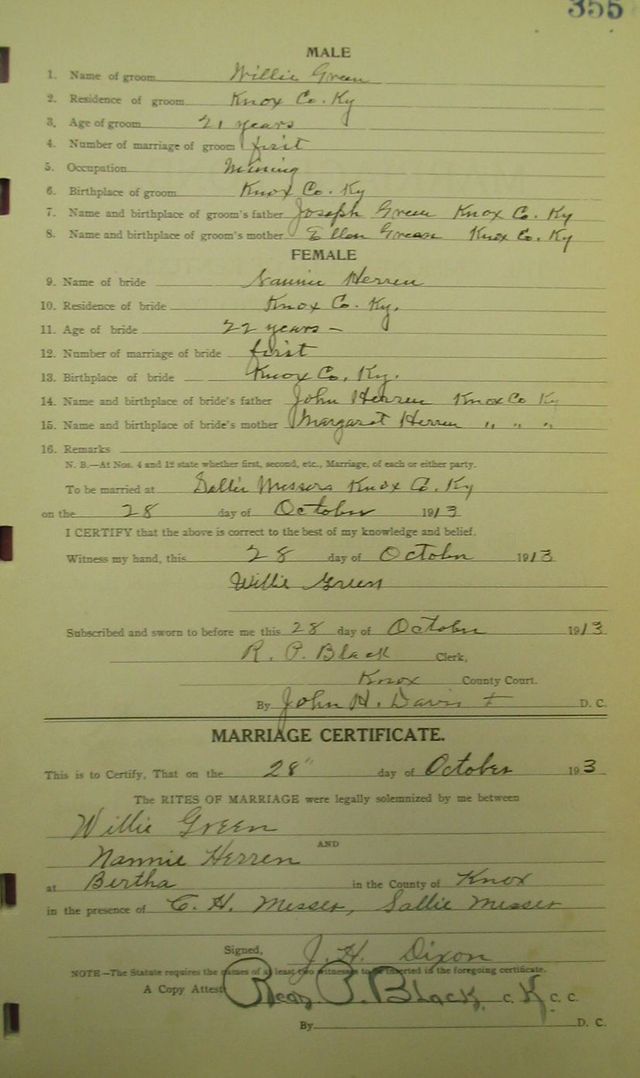 355
MALE
1. Name of groom Willie Green
2. Residence of groom Knox Co. Ky
3. Age of groom 21 years
4. Number of marriage of groom first
5. Occupation Mining
6. Birthplace of groom Knox Co. Ky
7. Name and birthplace of groom's father Joseph Green Knox Co. Ky
8. Name and birthplace of groom's mother Ellen Green Knox Co. Ky
FEMALE
9. Name of bride Nannie Herren
10. Residence of bride Knox Co. Ky.
11. Age of bride 22 years –
12. Number of marriage of bride first
13. Birthplace of bride Knox Co. Ky.
14. Name and birthplace of bride's father John Herren Knox Co Ky
15. Name and birthplace of bride's mother Margaret Herren " " "
16. Remarks
N. B.—At Nos. 4 and 12 state whether first, second, etc., Marriage, of each or either party.
To be married at Sallie Messers Knox Co. Ky
on the 28 day of October 1913
I CERTIFY that the above is correct to the best of my knowledge and belief.
Witness my hand, this 28 day of October 1913
Willie Green
Subscribed and sworn to before me this 28 day of October 1913
R. P. Black Clerk,
Knox County Court.
By John H. Davis D. C.
MARRIAGE CERTIFICATE.
This is to Certify, That on the 28" day of October 193
The RITES OF MARRIAGE were legally solemnized by me between
Willie Green
AND
Nannie Herren
at Bertha in the County of Knox
in the presence of C. H. Messer, Sallie Messer
Signed, J. H. Dixon
NOTE—The Statute requires the names of at least two witnesses to be inserted in the foregoing certificate.
A Copy Attest P. Black C. K. C. C.
By D. C.